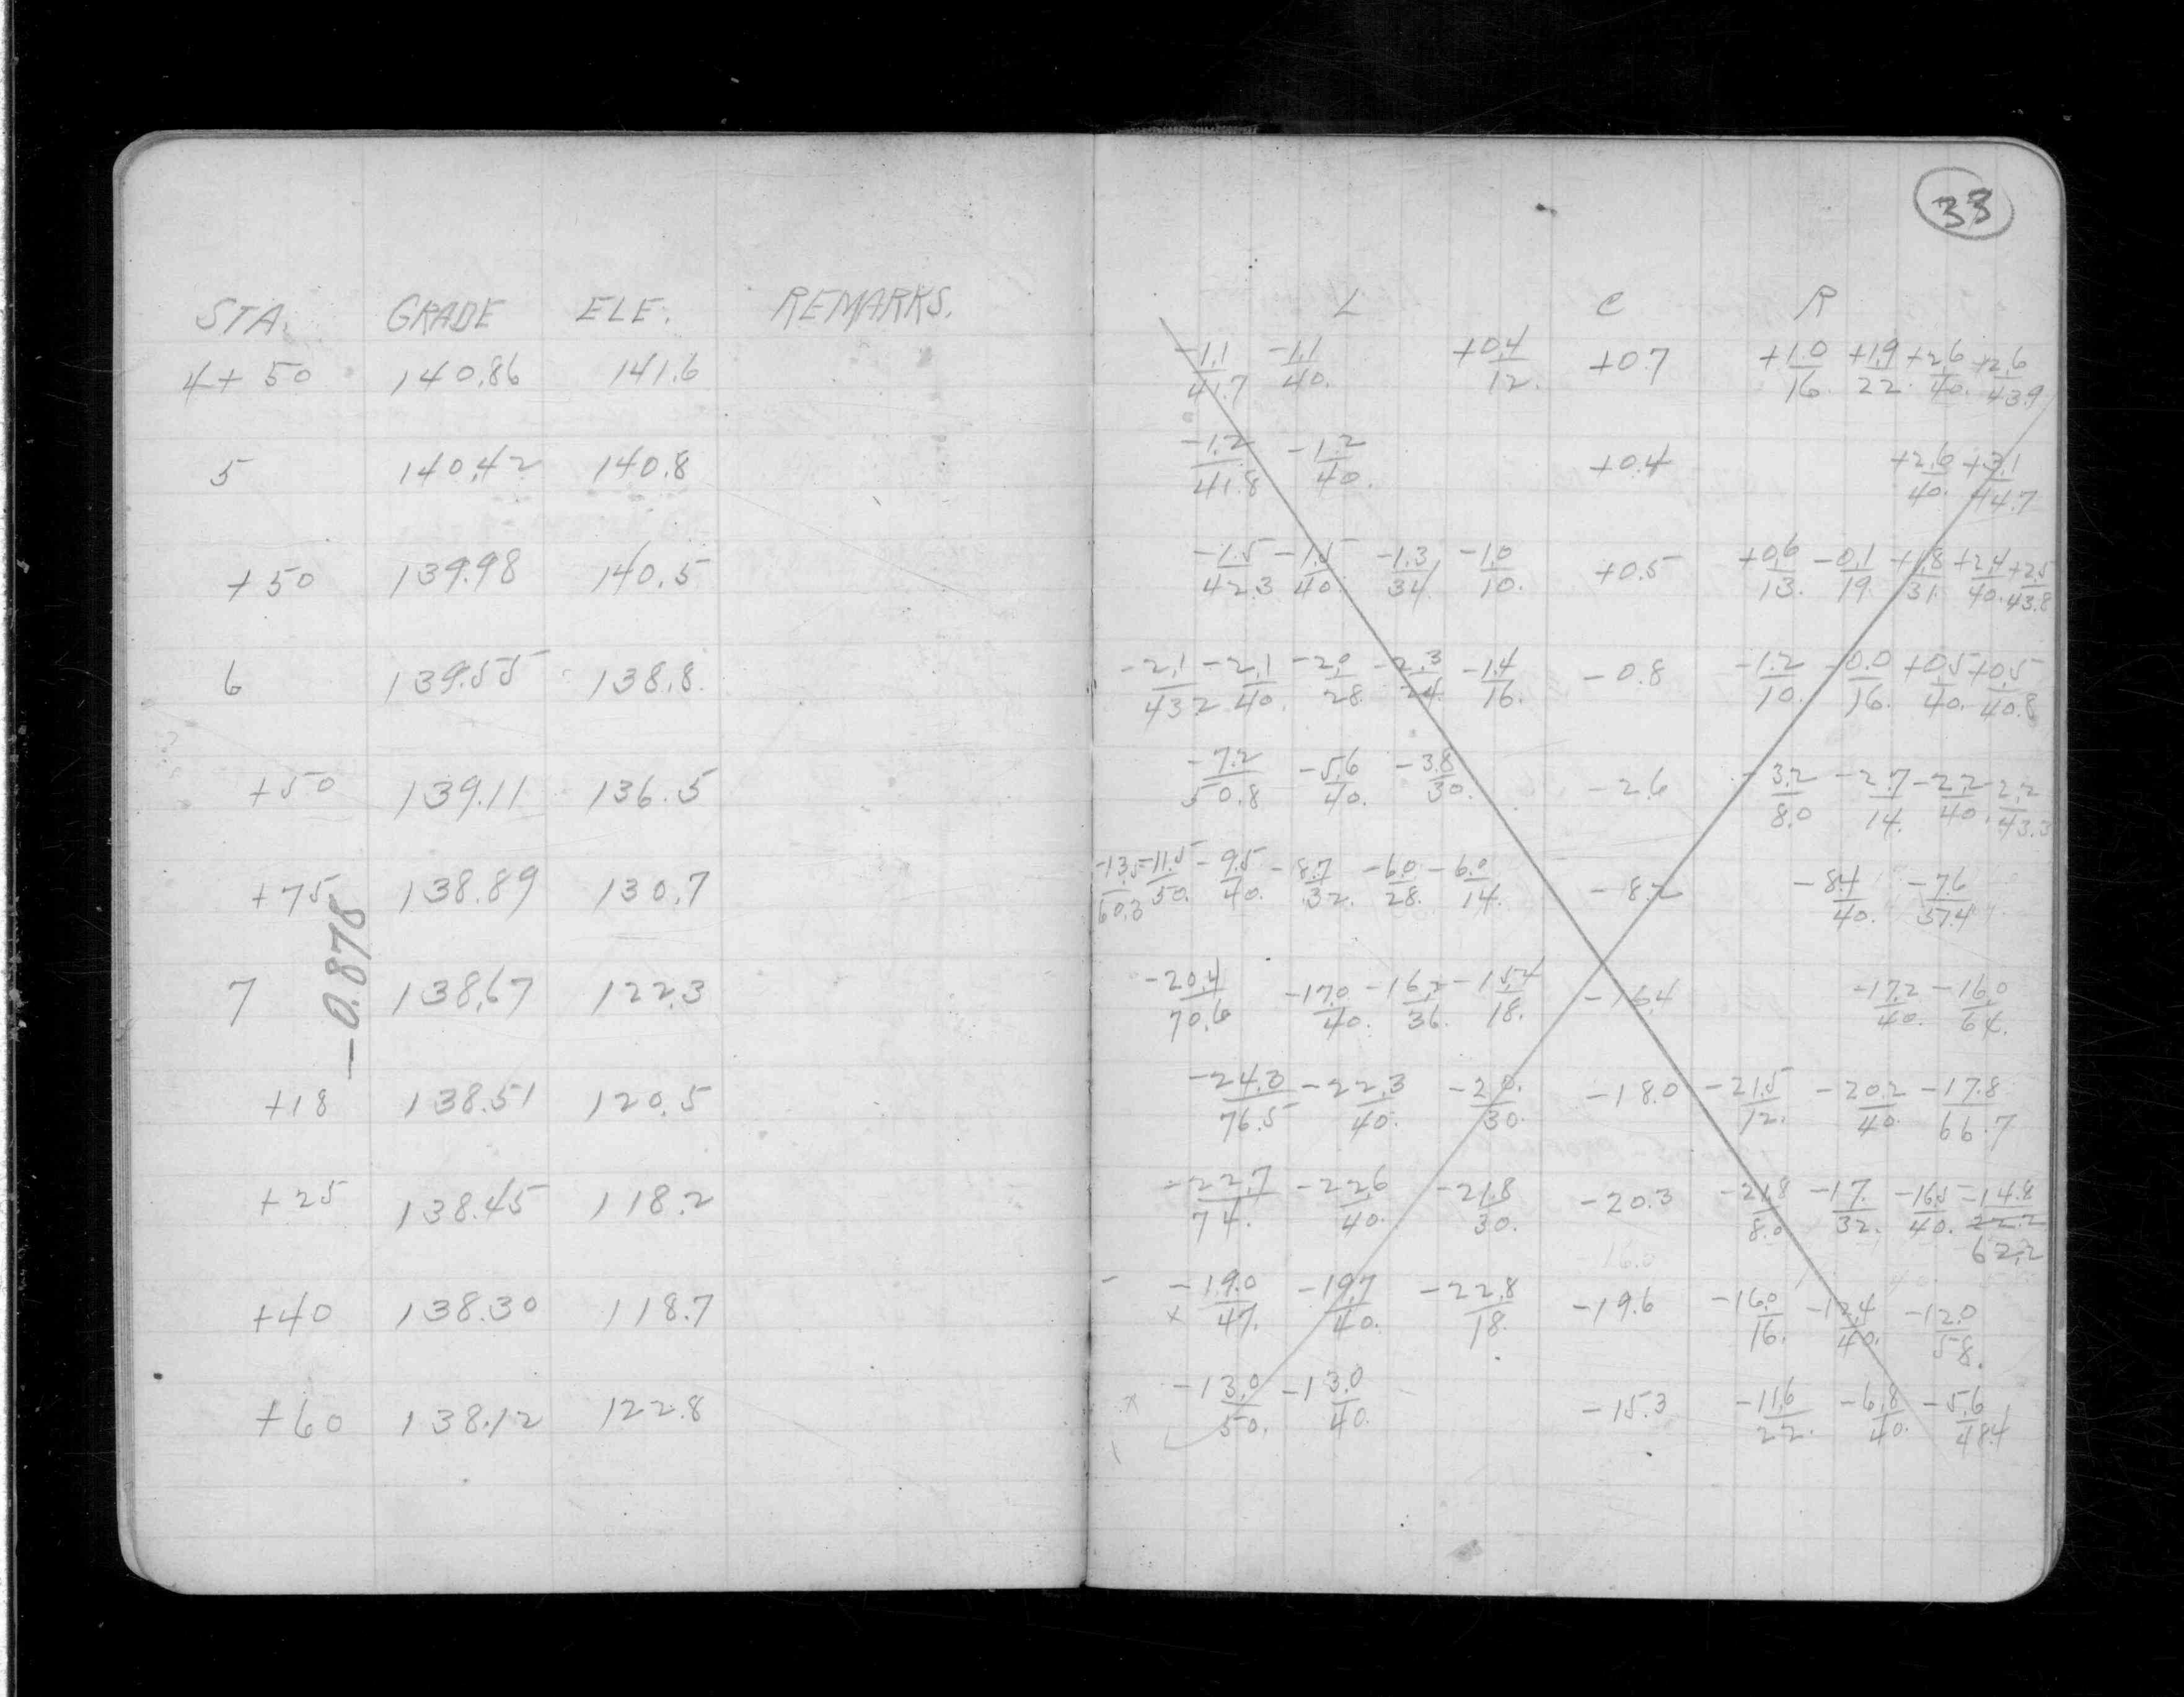 33
STA. GRADE ELE. REMARKS. L C R
4+50 140.86 141.6 -1.1/41.7 -1.1/40. +0.4/12. +0.7 +1.0/16. +1.9/22. +2.6/40. +2.6/43.9
5 140.42 140.8 -1.2/41.8 -1.2/40. +0.4 +2.6/40. +3.1/44.7
+50 139.98 140.5 -1.5/42.3 -1.5/40. -1.3/34. -1.0/10. +0.5 +0.6/13. -0.1/19. +1.8/31. +2.4/40. +2.5/43.8
6 139.55 138.8 -2.1/43.2 -2.1/40. -2.0/28. -2.3/24. -1.4/16. -0.8 -1.2/10. -0.0/16. +0.5/40. +0.5/40.8
+50 139.11 136.5 -7.2/50.8 -5.6/40. -3.8/30. -2.6 -3.2/8.0 -2.7/14. -2.2/40. -2.2/43.3
+75 138.89 130.7 -13.5/60.3 -11.5/50. -9.5/40. -8.7/32. -6.0/28. -6.0/14. -8.2 -8.4/40. -7.6/57.4
-0.878
7 138.67 122.3 -20.4/70.6 -17.0/40. -16.2/36. -15.4/18. -16.4 -17.2/40. -16.0/64.
+18 138.51 120.5 -24.3/76.5 -22.3/40. -20./30. -18.0 -21.5/12. -20.2/40. -17.8/66.7
+25 138.45 118.2 -22.7/74. -22.6/40. -21.8/30. -20.3 -21.8/8.0 -17./32. -16.5/40. -14.8/22.2
62.2
16.0
+40 138.30 118.7 - x -19.0/47. -19.7/40. -22.8/18. -19.6 -16.0/16. -12.4/40. -12.0/58.
+60 138.12 122.8 x -13.0/50. -13.0/40. -15.3 -11.6/22. -6.8/40. -5.6/48.4